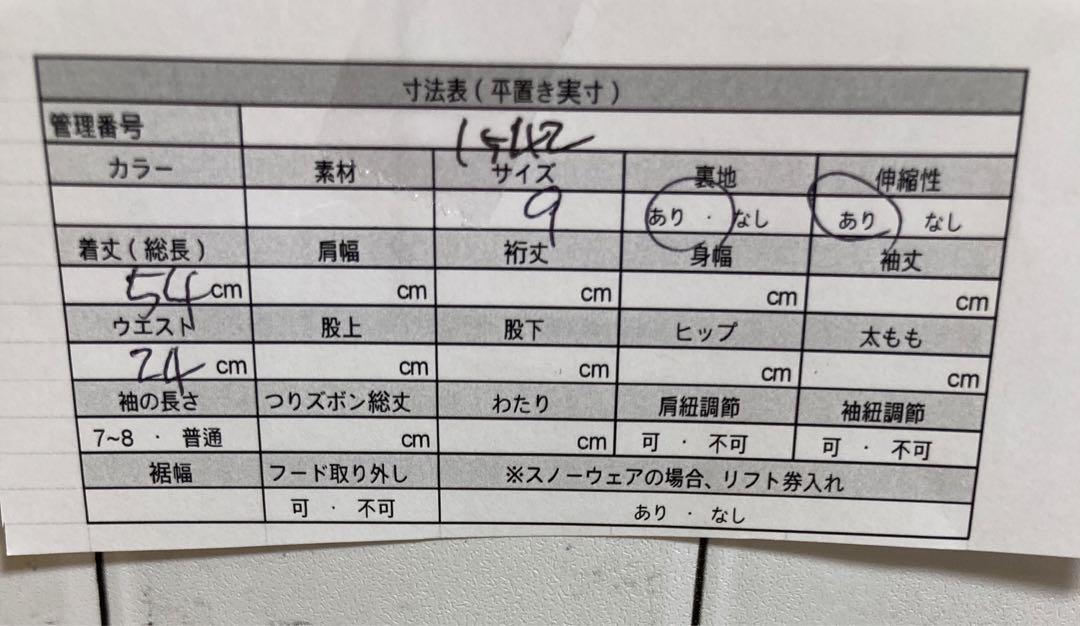 寸法表(平置き実寸)
管理番号 1542
カラー 素材 サイズ 裏地 伸縮性
9 あり ・ なし あり なし
着丈(総長) 肩幅 裄丈 身幅 袖丈
54 cm cm cm cm cm
ウエスト 股上 股下 ヒップ 太もも
24 cm cm cm cm cm
袖の長さ つりズボン総丈 わたり 肩紐調節 袖紐調節
7~8 ・ 普通 cm cm 可 ・ 不可 可 ・ 不可
裾幅 フード取り外し ※スノーウェアの場合、リフト券入れ
可 ・ 不可 あり ・ なし